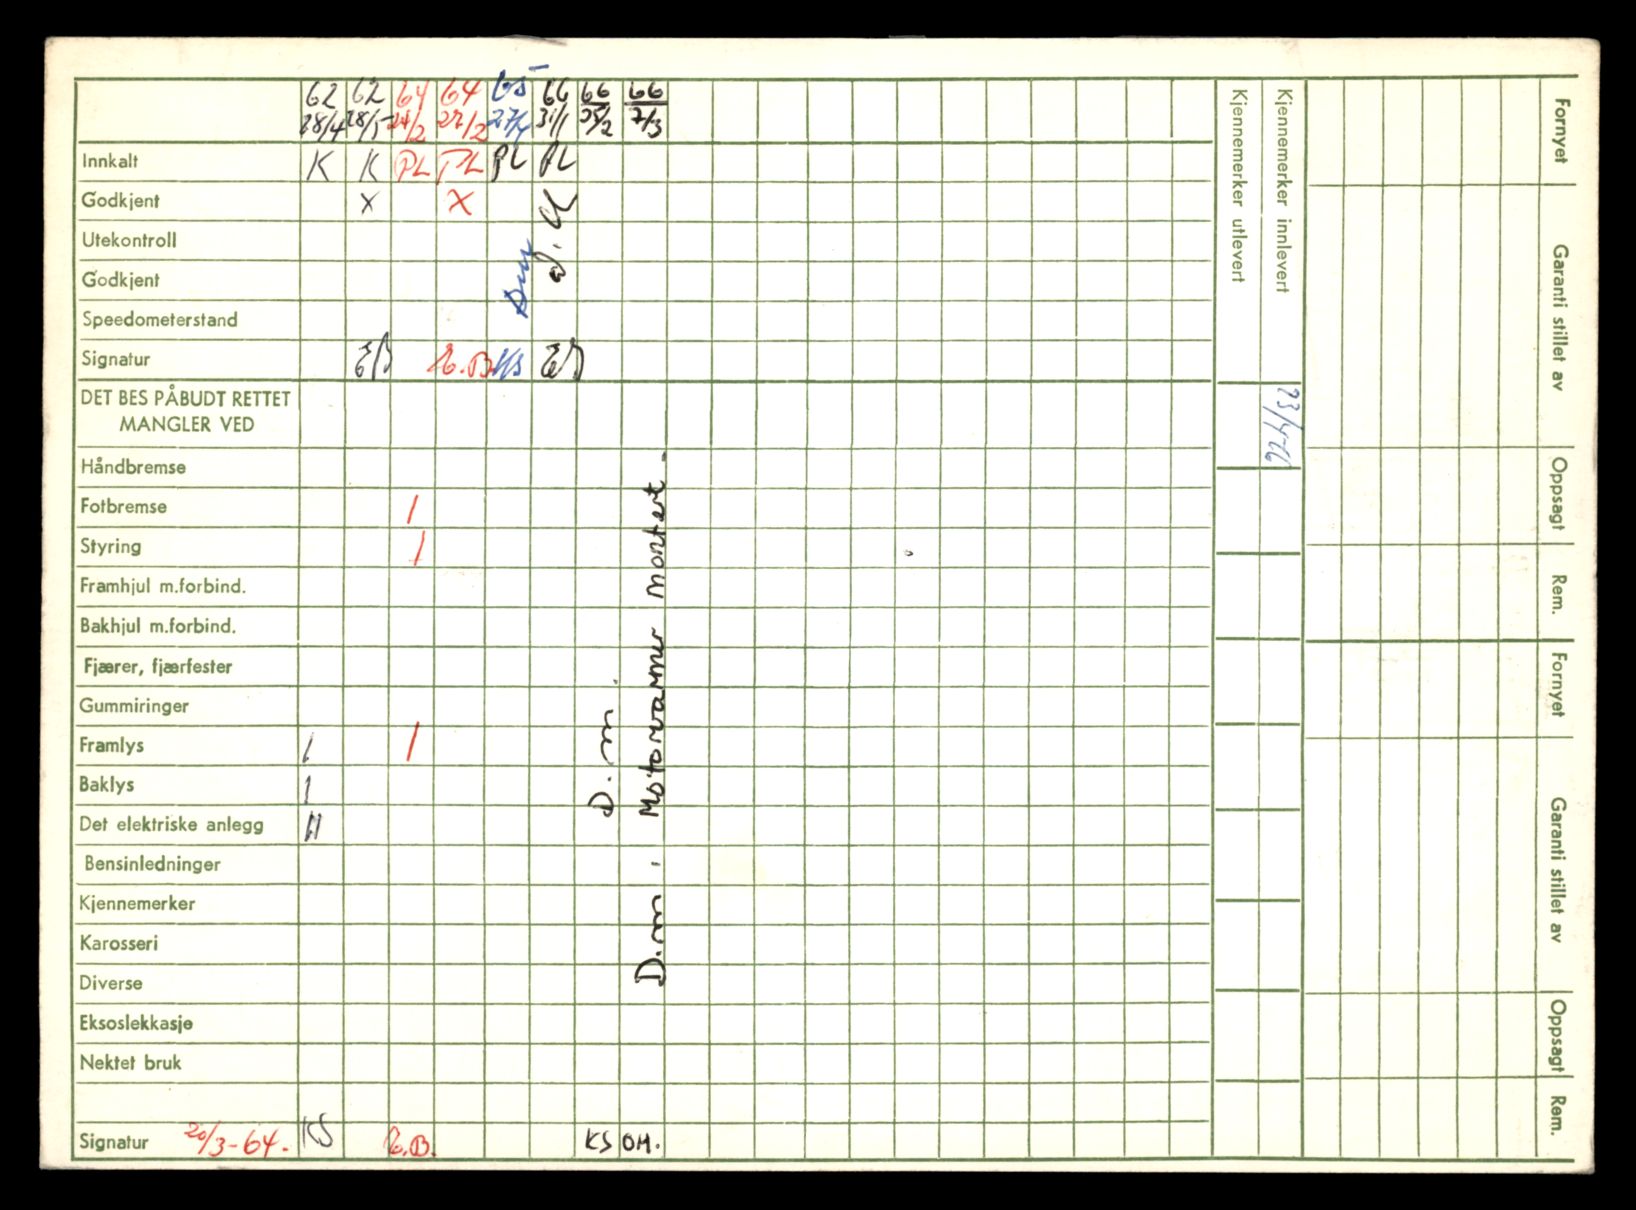 62 62 64 64 65 66 66 66
28/4 28/5 24/2 27/2 27/4 31/1 25/2 7/3
Innkalt K K PL PL PL PL
Godkjent X X
Utekontroll
Godkjent
Speedometerstand
Signatur EB E.B. KS EB
DET BES PÅBUDT RETTET
MANGLER VED
Håndbremse
Fotbremse /
Styring /
Framhjul m.forbind.
Bakhjul m.forbind.
Fjærer, fjærfester
Gummiringer
Framlys / /
Baklys /
Det elektriske anlegg
Bensinledninger
Kjennemerker
Karosseri
Diverse
Eksoslekkasje
Nektet bruk
Signatur 20/3-64. KS E.B. KS OM.
D.m.
D.m. Motorvarmer montert.
Kjennemerker utlevert
Kjennemerker innlevert
23/4-66
Fornyet
Garanti stillet av
Oppsagt
Rem.
Fornyet
Garanti stillet av
Oppsagt
Rem.